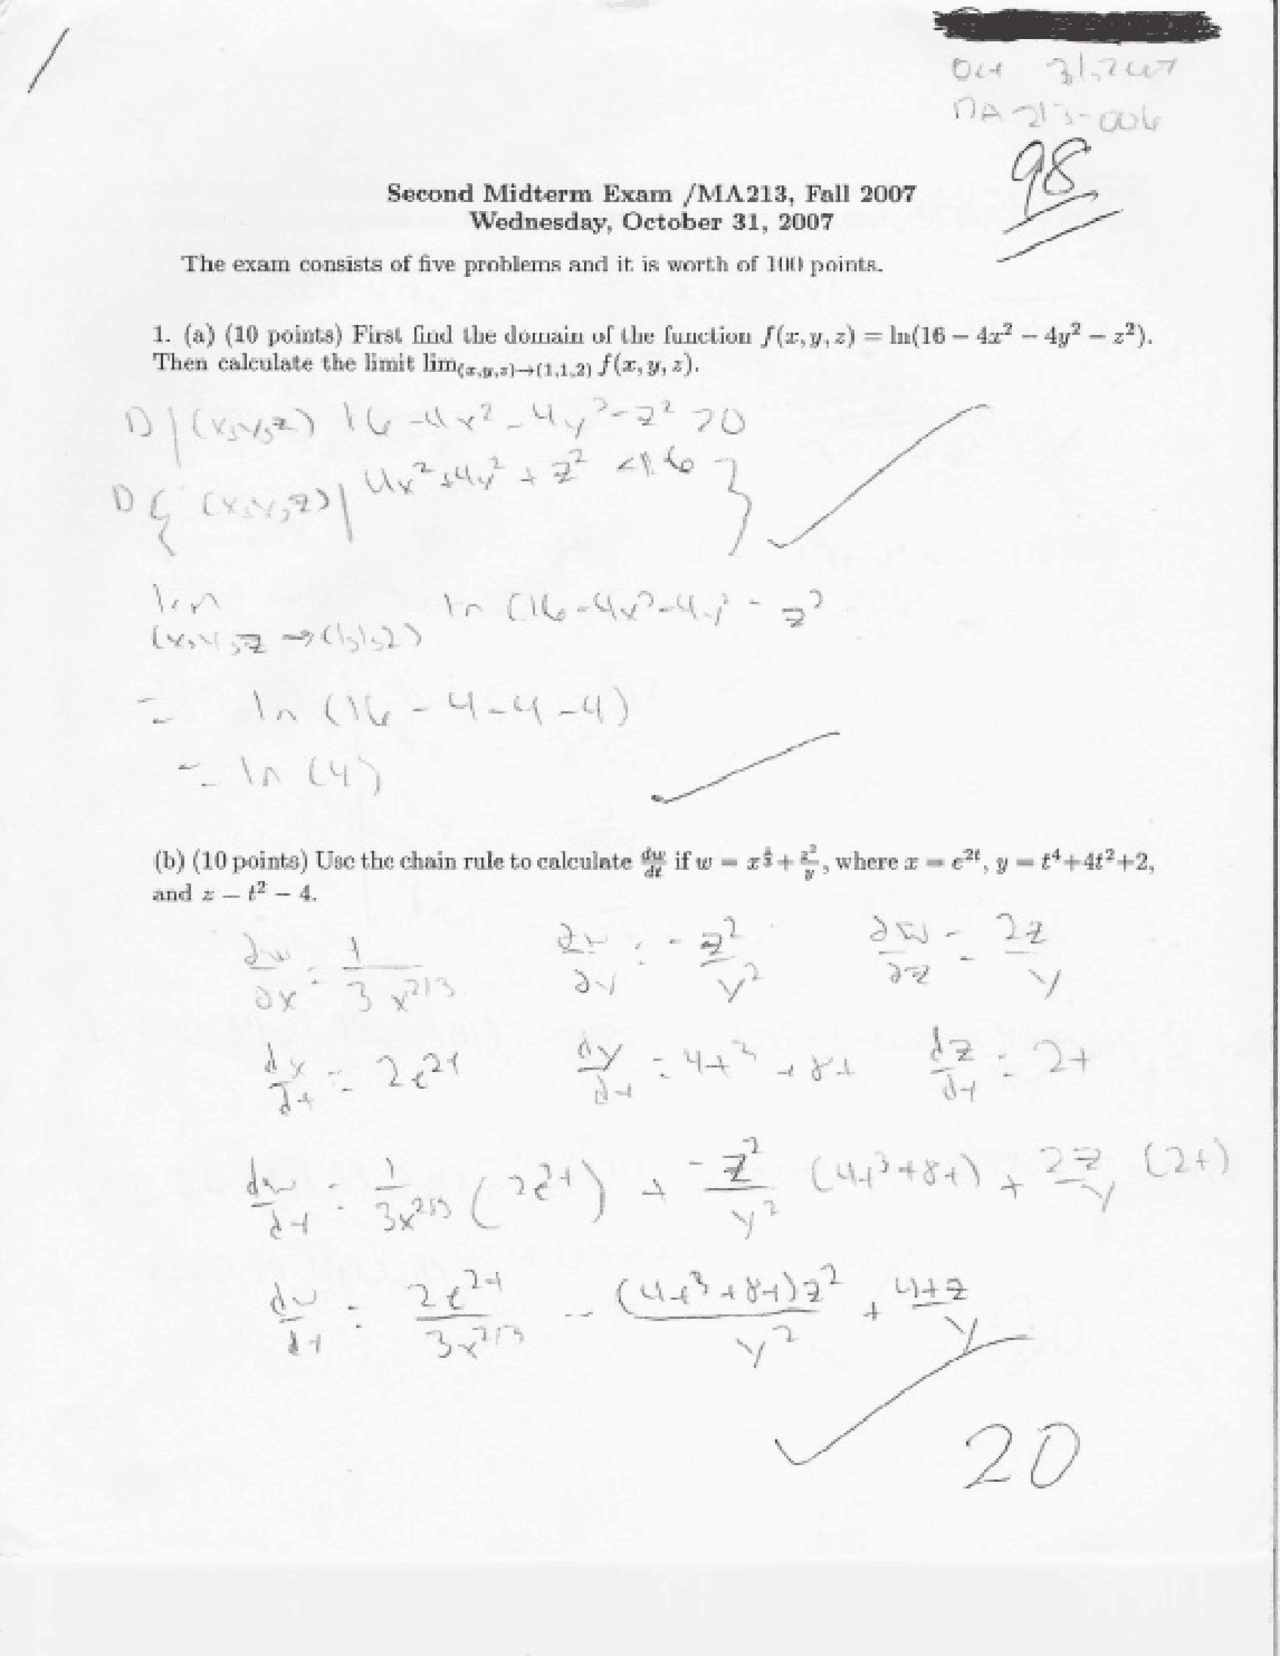 Oct 31, 2007
MA 213-006
98
Second Midterm Exam /MA213, Fall 2007
Wednesday, October 31, 2007
The exam consists of five problems and it is worth of 100 points.
1. (a) (10 points) First find the domain of the function f(x, y, z) = ln(16 − 4x² − 4y² − z²).
Then calculate the limit lim(x,y,z)→(1,1,2) f(x, y, z).
D | (x,y,z) 16-4x²-4y²-z² >0
D { (x,y,z) | 4x²+4y²+z² <16 }
lim ln (16-4x²-4y²-z²
(x,y,z → (1,1,2)
= ln (16-4-4-4)
= ln (4)
(b) (10 points) Use the chain rule to calculate dw/dt if w = x^(1/3) + z²/y, where x = e^(2t), y = t⁴+4t²+2,
and z = t² − 4.
∂w/∂x = 1/(3x^(2/3)) ∂w/∂y = -z²/y² ∂w/∂z = 2z/y
dx/dt = 2e^(2t) dy/dt = 4t³+8t dz/dt = 2t
dw/dt = 1/(3x^(2/3)) (2e^(2t)) + -z²/y² (4t³+8t) + 2z/y (2t)
dw/dt = 2e^(2t)/(3x^(2/3)) - (4t³+8t)z²/y² + 4tz/y
20